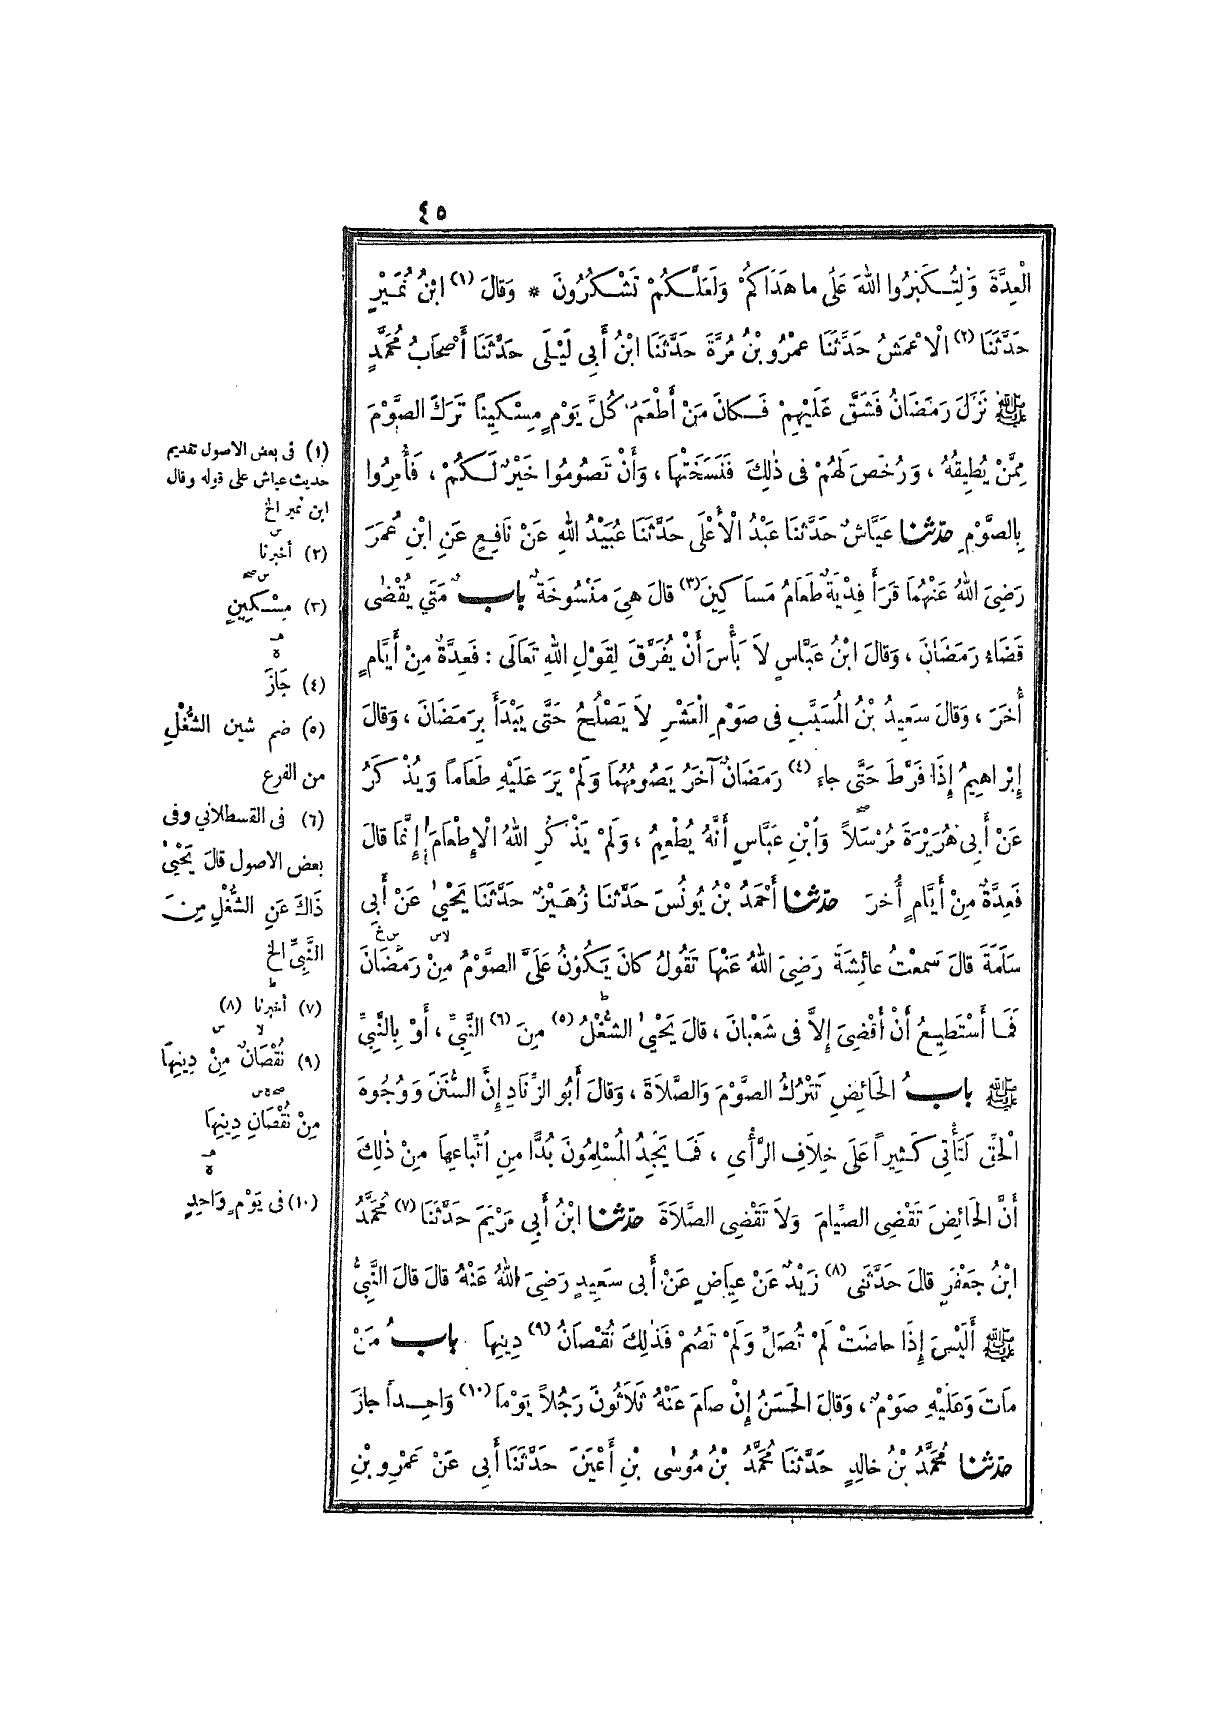 ٤٥
الْعِدَّةَ وَلِتُكَبِّرُوا اللهَ عَلَى ما هَدَاكُمْ وَلَعَلَّكُمْ تَشْكُرُونَ * وَقالَ (١) ابْنُ نُمَيْرٍ
حَدَّثَنَا (٢) الْأَعْمَشُ حَدَّثَنَا عَمْرُو بْنُ مُرَّةَ حَدَّثَنَا ابْنُ أَبِي لَيْلَى حَدَّثَنَا أَصْحَابُ مُحَمَّدٍ
ﷺ نَزَلَ رَمَضَانُ فَشَقَّ عَلَيْهِمْ فَكانَ مَنْ أَطْعَمَ كُلَّ يَوْمٍ مِسْكِيناً تَرَكَ الصَّوْمَ
مِمَّنْ يُطِيقُهُ ، وَرُخِّصَ لَهُمْ فِى ذٰلِكَ فَنَسَخَتْهَا ، وَأَنْ تَصُومُوا خَيْرٌ لَكُمْ ، فَأُمِرُوا
بِالصَّوْمِ حدّثنا عَيَّاشٌ حَدَّثَنَا عَبْدُ الْأَعْلَى حَدَّثَنَا عُبَيْدُ اللهِ عَنْ نَافِعٍ عَنِ ابْنِ عُمَرَ
رَضِيَ اللهُ عَنْهُمَا قَرَأَ فِدْيَةٌ طَعَامُ مَسَاكِينَ (٣) قالَ هِيَ مَنْسُوخَةٌ بابٌ مَتَى يُقْضٰى
قَضَاءُ رَمَضَانَ ، وَقالَ ابْنُ عَبَّاسٍ لاَ بَأْسَ أَنْ يُفَرَّقَ لِقَوْلِ اللهِ تَعَالَى : فَعِدَّةٌ مِنْ أَيَّامٍ
أُخَرَ ، وَقالَ سَعِيدُ بْنُ الْمُسَيَّبِ فِى صَوْمِ الْعَشْرِ لاَ يَصْلُحُ حَتَّى يَبْدَأَ بِرَمَضَانَ ، وَقالَ
إِبْرَاهِيمُ إِذَا فَرَّطَ حَتَّى جاءَ (٤) رَمَضَانٌ آخَرُ يَصُومُهُمَا وَلَمْ يَرَ عَلَيْهِ طَعَاماً وَيُذْكَرُ
عَنْ أَبِى هُرَيْرَةَ مُرْسَلاً وَابْنِ عَبَّاسٍ أَنَّهُ يُطْعِمُ ، وَلَمْ يَذْكُرِ اللهُ الْإِطْعَامَ إِنَّمَا قالَ
فَعِدَّةٌ مِنْ أَيَّامٍ أُخَرَ حدّثنا أَحْمَدُ بْنُ يُونُسَ حَدَّثَنَا زُهَيْرٌ حَدَّثَنَا يَحْيىٰ عَنْ أَبِى
سَلَمَةَ قالَ سَمِعْتُ عائِشَةَ رَضِيَ اللهُ عَنْهَا تَقُولُ كانَ يَكُونُ عَلَيَّ الصَّوْمُ مِنْ رَمَضَانَ
فَمَا أَسْتَطِيعُ أَنْ أَقْضِيَ إِلاَّ فِى شَعْبَانَ ، قالَ يَحْيىٰ الشُّغْلُ (٥) مِنَ (٦) النَّبِيِّ ، أَوْ بِالنَّبِيِّ
ﷺ بابُ الحَائِضِ تَتْرُكُ الصَّوْمَ وَالصَّلاَةَ ، وَقالَ أَبُو الزِّنَادِ إِنَّ السُّنَنَ وَوُجُوهَ
الْحَقِّ لَتَأْتِى كَثِيراً عَلَى خِلاَفِ الرَّأْيِ ، فَمَا يَجِدُ الْمُسْلِمُونَ بُدًّا مِنِ اتِّبَاعِهَا مِنْ ذٰلِكَ
أَنَّ الحَائِضَ تَقْضِى الصِّيَامَ وَلاَ تَقْضِى الصَّلاَةَ حدّثنا ابْنُ أَبِي مَرْيَمَ حَدَّثَنَا (٧) مُحَمَّدُ
ابْنُ جَعْفَرٍ قالَ حَدَّثَنِى (٨) زَيْدٌ عَنْ عِيَاضٍ عَنْ أَبِى سَعِيدٍ رَضِيَ اللهُ عَنْهُ قالَ قالَ النَّبِيُّ
ﷺ أَلَيْسَ إِذَا حاضَتْ لَمْ تُصَلِّ وَلَمْ تَصُمْ فَذٰلِكَ نُقْصَانُ (٩) دِينِهَا بابُ مَنْ
ماتَ وَعَلَيْهِ صَوْمٌ ، وَقالَ الحَسَنُ إِنْ صَامَ عَنْهُ ثَلاَثُونَ رَجُلاً يَوْماً (١٠) وَاحِداً جازَ
حدّثنا مُحَمَّدُ بْنُ خالِدٍ حَدَّثَنَا مُحَمَّدُ بْنُ مُوسٰى بْنِ أَعْيَنَ حَدَّثَنَا أَبِى عَنْ عَمْرِو بْنِ
(١) فى بعض الاصول تقديم
حديث عياش على قوله وقال
ابن نمير الخ
(٢) أخبرنا
(٣) مِسْكِينٍ
(٤) حَازَ
(٥) ضم شين الشُّغْلِ
من الفرع
(٦) فى القسطلاني وفى
بعض الاصول قالَ يَحْيىٰ
ذَاكَ عَنِ الشُّغْلِ مِنَ
النَّبِيِّ الخ
(٧) أخبرنا (٨)
(٩) نُقْصَانٌ مِنْ دِينِهَا
مِنْ نُقْصَانِ دِينِهَا
(١٠) فى يَوْمٍ وَاحِدٍ